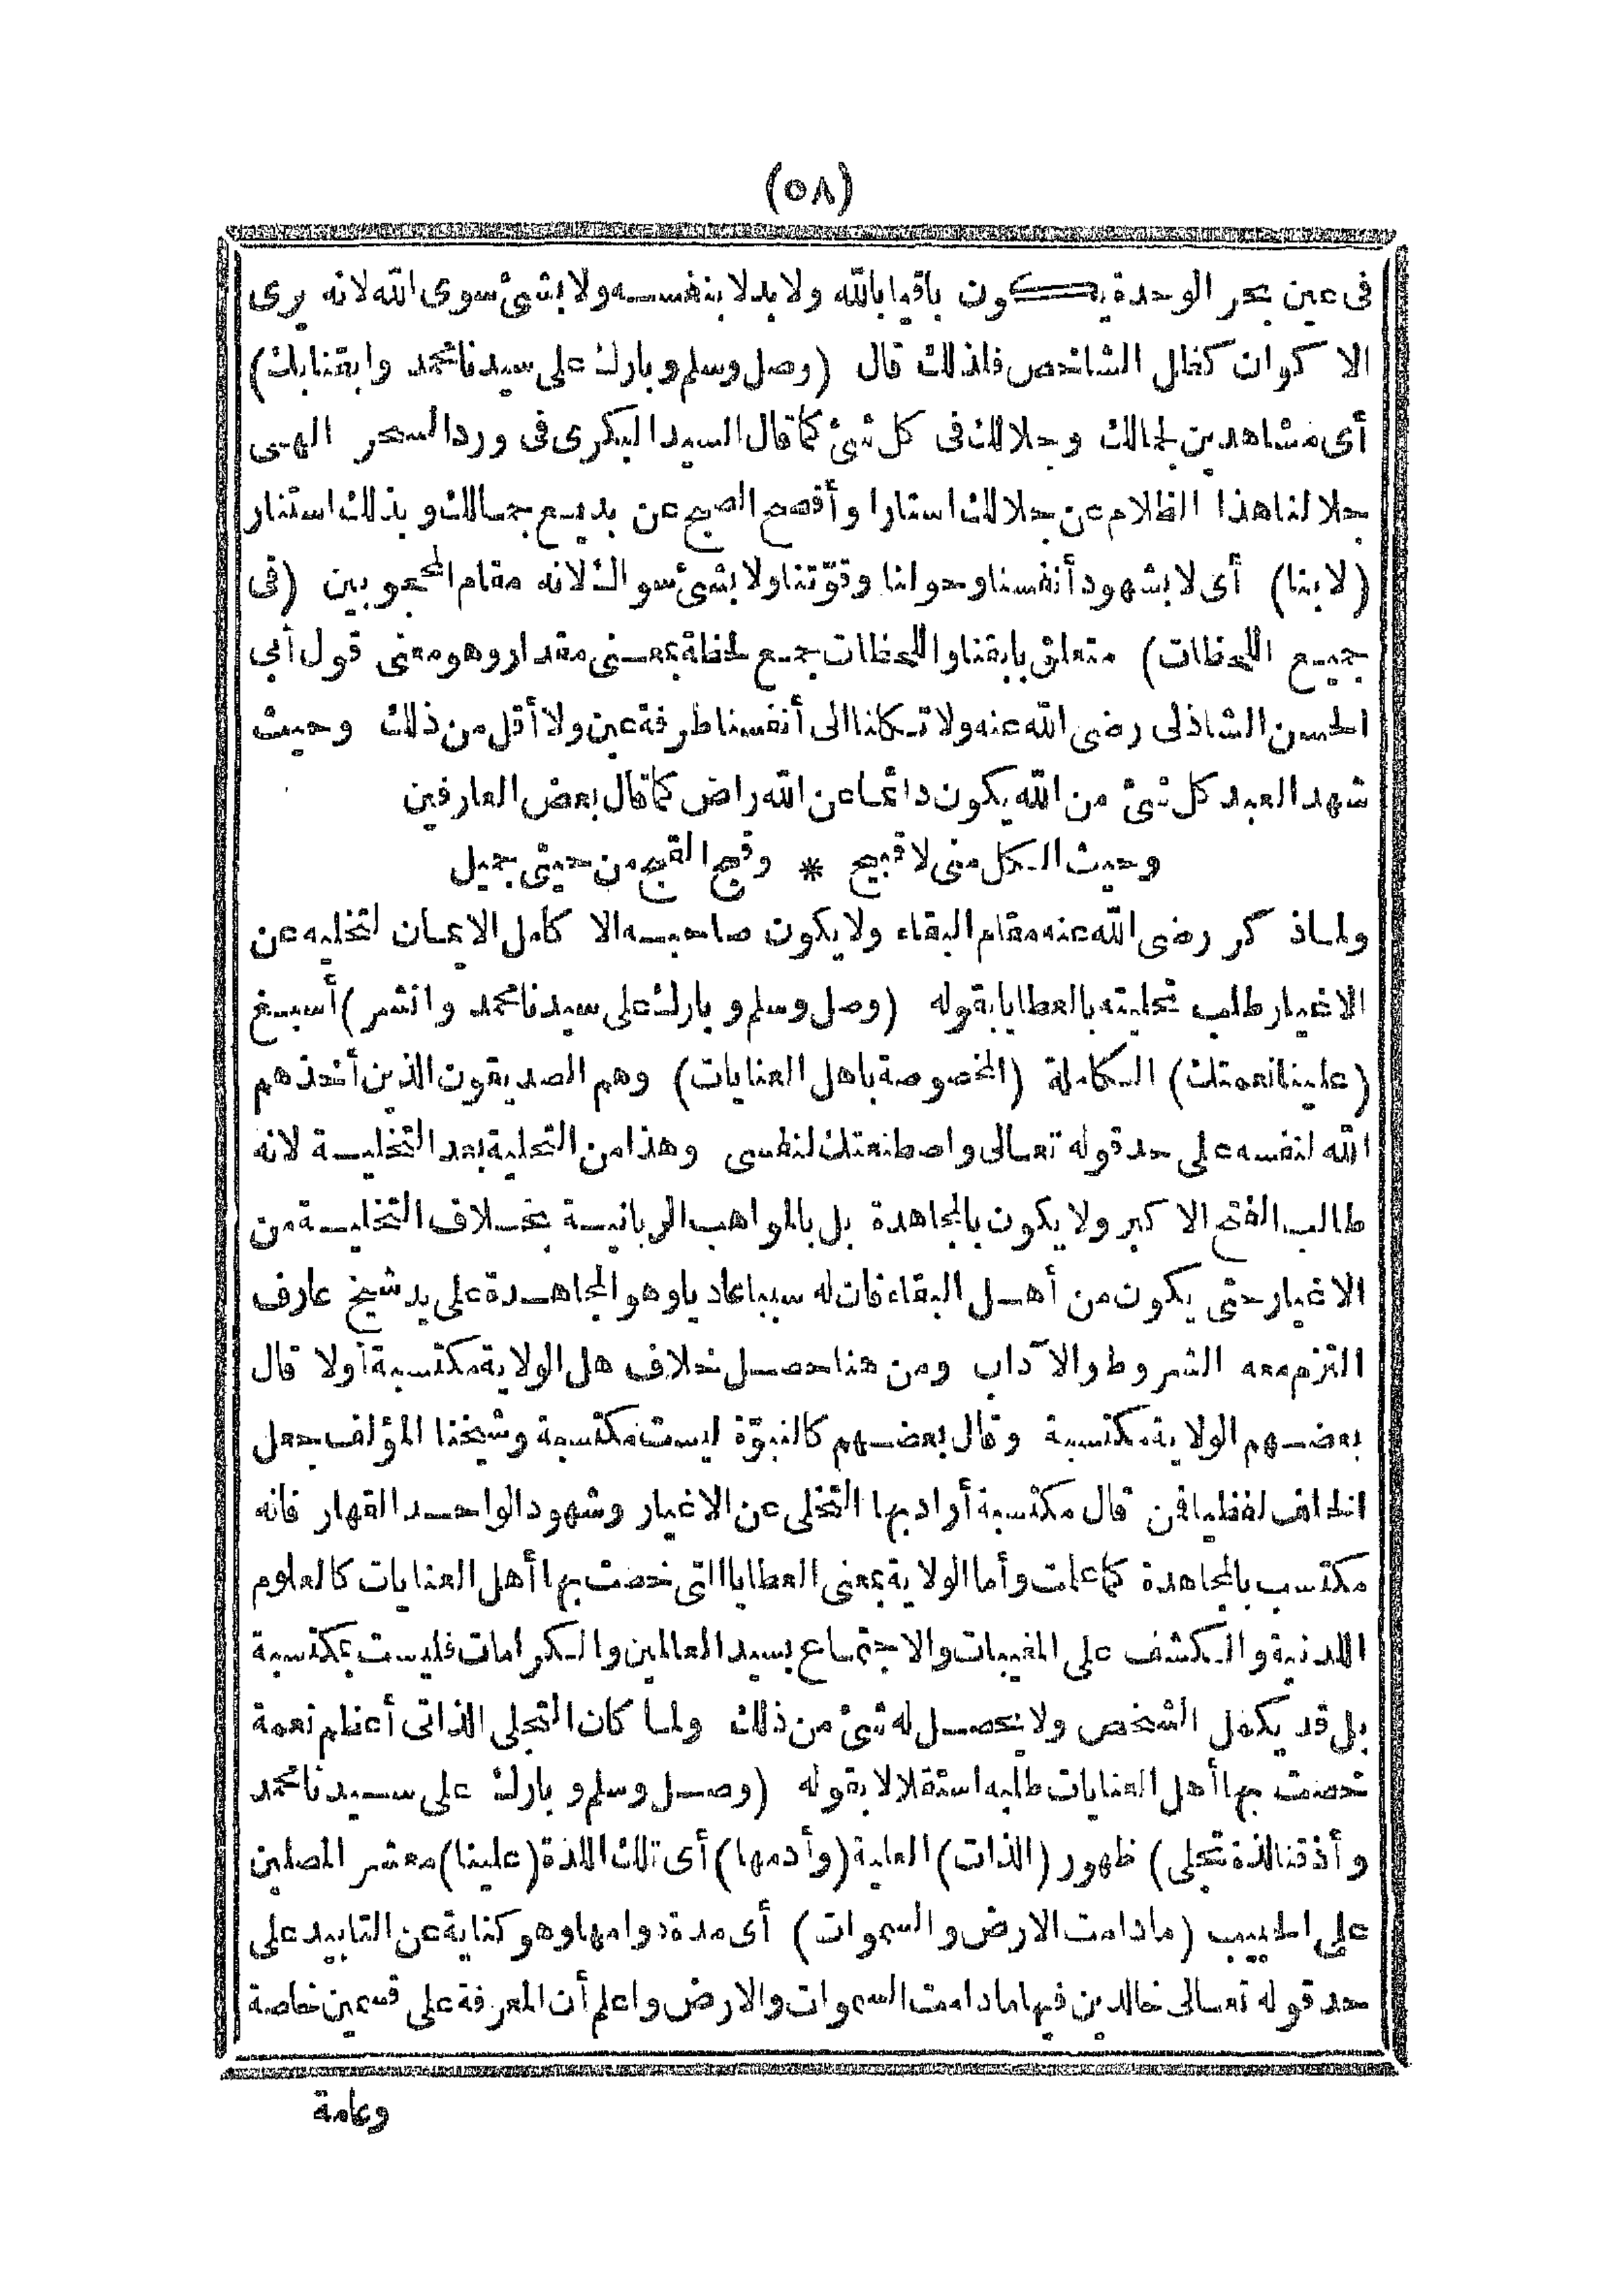 (٥٨)
فى عين بحر الوحدة يكون باقيا بالله ولا بد لا بنفسه ولا بشئ سوى الله لانه يرى
الا كوان كظل الشاخص فلذلك قال (وصل وسلم وبارك على سيدنا محمد وابقنا بك)
أى مشاهدين لجمالك وجلالك فى كل شئ كما قال السيد البكرى فى ورد السحر الهى
جلا لنا هذا الظلام عن جلالك استارا وأفصح الصبح عن بديع جمالك وبذلك استنار
(لا بنا) أى لا بشهود أنفسنا وحولنا وقوّتنا ولا بشئ سواك لانه مقام المحجوبين (فى
جميع اللحظات) متعلق بابقنا واللحظات جمع لحظة بمعنى مقدار وهو معنى قول أبى
الحسن الشاذلى رضى الله عنه ولا تكلنا الى أنفسنا طرفة عين ولا أقل من ذلك وحيث
شهد العبد كل شئ من الله يكون دائما عن الله راض كما قال بعض العارفين
وحيث الكل منى لا قبيح * وقبح القبح من حيثى جميل
ولما ذكر رضى الله عنه مقام البقاء ولا يكون صاحبه الا كامل الايمان لتخليه عن
الاغيار طلب تحليته بالعطايا بقوله (وصل وسلم وبارك على سيدنا محمد وانشر) أسبغ
(علينا نعمتك) الكاملة (المخصوصة باهل العنايات) وهم الصديقون الذين أخذهم
الله لنفسه على حد قوله تعالى واصطنعتك لنفسى وهذا من التحلية بعد التخلية لانه
طالب الفتح الا كبر ولا يكون بالمجاهدة بل بالمواهب الربانية بخلاف التخلية من
الاغيار حتى يكون من أهل البقاء فان له سببا عاديا وهو المجاهدة على يد شيخ عارف
التزم معه الشروط والآداب ومن هنا حصل خلاف هل الولاية مكتسبة أولا قال
بعضهم الولاية مكتسبة وقال بعضهم كالنبوّة ليست مكتسبة وشيخنا المؤلف جعل
الخلف لفظيا فمن قال مكتسبة أراد بها التخلى عن الاغيار وشهود الواحد القهار فانه
مكتسب بالمجاهدة كما علمت وأما الولاية بمعنى العطايا التى خصت بها أهل العنايات كالعلوم
اللدنية والكشف على المغيبات والاجتماع بسيد العالمين والكرامات فليست بمكتسبة
بل قد يكمل الشخص ولا يحصل له شئ من ذلك ولما كان التجلى الذاتى أعظم نعمة
خصت بها أهل العنايات طلبه استقلالا بقوله (وصل وسلم وبارك على سيدنا محمد
وأذقنا لذة تجلى) ظهور (الذات) العلية (وأدمها) أى تلك اللذة (علينا) معشر المصلين
على الحبيب (مادامت الارض والسموات) أى مدة دوامها وهو كناية عن التابيد على
حد قوله تعالى خالدين فيها مادامت السموات والارض واعلم أن المعرفة على قسمين خاصة
وعامة